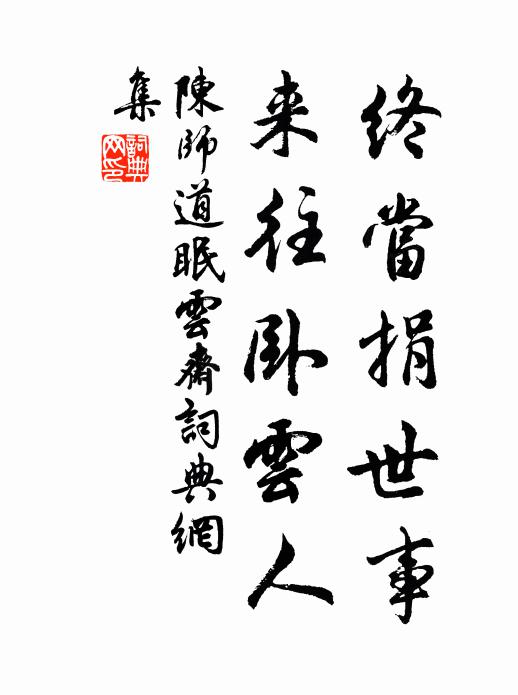 終當捐世事
来往卧雲人
陳師道眠雲齋詞典網
集
詞典
网印